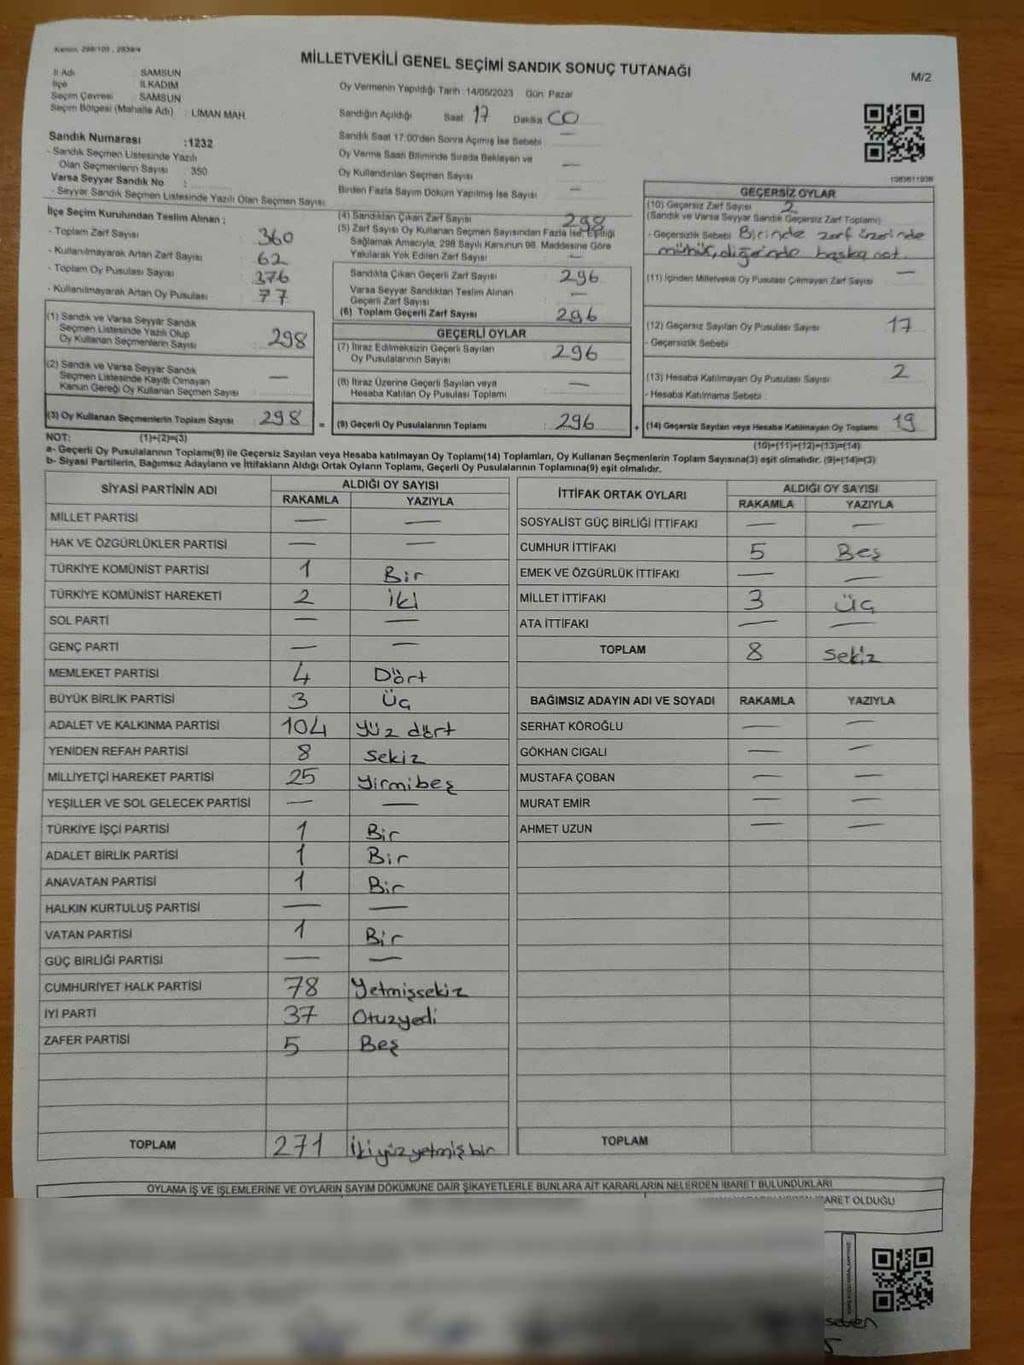 Kanun: 298/109 , 2839/4
MİLLETVEKİLİ GENEL SEÇİMİ SANDIK SONUÇ TUTANAĞI
M/2
İl Adı SAMSUN
İlçe İLKADIM
Seçim Çevresi SAMSUN
Seçim Bölgesi (Mahalle Adı) : LİMAN MAH.
Oy Vermenin Yapıldığı Tarih :14/05/2023 Gün: Pazar
Sandığın Açıldığı Saat 17 Dakika 00
Sandık Saat 17:00'den Sonra Açılmış İse Sebebi —
Oy Verme Saati Bitiminde Sırada Bekleyen ve
Oy Kullandırılan Seçmen Sayısı —
Birden Fazla Sayım Döküm Yapılmış İse Sayısı —
Sandık Numarası :1232
- Sandık Seçmen Listesinde Yazılı
Olan Seçmenlerin Sayısı : 350
Varsa Seyyar Sandık No :
- Seyyar Sandık Seçmen Listesinde Yazılı Olan Seçmen Sayısı:
İlçe Seçim Kurulundan Teslim Alınan :
- Toplam Zarf Sayısı 360
- Kullanılmayarak Artan Zarf Sayısı 62
- Toplam Oy Pusulası Sayısı 376
- Kullanılmayarak Artan Oy Pusulası 77
(1) Sandık ve Varsa Seyyar Sandık
Seçmen Listesinde Yazılı Olup
Oy Kullanan Seçmenlerin Sayısı 298
(2) Sandık ve Varsa Seyyar Sandık
Seçmen Listesinde Kayıtlı Olmayan
Kanun Gereği Oy Kullanan Seçmen Sayısı —
(3) Oy Kullanan Seçmenlerin Toplam Sayısı 298 =
(4) Sandıktan Çıkan Zarf Sayısı 298
(5) Zarf Sayısı Oy Kullanan Seçmen Sayısından Fazla İse, Eşitliği
Sağlamak Amacıyla, 298 Sayılı Kanunun 98. Maddesine Göre
Yakılarak Yok Edilen Zarf Sayısı —
Sandıkta Çıkan Geçerli Zarf Sayısı 296
Varsa Seyyar Sandıktan Teslim Alınan
Geçerli Zarf Sayısı —
(6) Toplam Geçerli Zarf Sayısı 296
GEÇERLİ OYLAR
(7) İtiraz Edilmeksizin Geçerli Sayılan
Oy Pusulalarının Sayısı 296
(8) İtiraz Üzerine Geçerli Sayılan veya
Hesaba Katılan Oy Pusulası Toplamı —
(9) Geçerli Oy Pusulalarının Toplamı 296 +
GEÇERSİZ OYLAR
(10) Geçersiz Zarf Sayısı 2
(Sandık ve Varsa Seyyar Sandık Geçersiz Zarf Toplamı)
- Geçersizlik Sebebi Birinde zarf üzerinde
mühür, diğerinde başka not.
(11) İçinden Milletvekili Oy Pusulası Çıkmayan Zarf Sayısı —
(12) Geçersiz Sayılan Oy Pusulası Sayısı 17
- Geçersizlik Sebebi
(13) Hesaba Katılmayan Oy Pusulası Sayısı 2
- Hesaba Katılmama Sebebi
(14) Geçersiz Sayılan veya Hesaba Katılmayan Oy Toplamı 19
NOT: (1)+(2)=(3)
(10)+(11)+(12)+(13)=(14)
a- Geçerli Oy Pusulalarının Toplamı(9) ile Geçersiz Sayılan veya Hesaba katılmayan Oy Toplamı(14) Toplamları, Oy Kullanan Seçmenlerin Toplam Sayısına(3) eşit olmalıdır. (9)+(14)=(3)
b- Siyasi Partilerin, Bağımsız Adayların ve İttifakların Aldığı Ortak Oyların Toplamı, Geçerli Oy Pusulalarının Toplamına(9) eşit olmalıdır.
SİYASİ PARTİNİN ADI ALDIĞI OY SAYISI
RAKAMLA YAZIYLA
MİLLET PARTİSİ — —
HAK VE ÖZGÜRLÜKLER PARTİSİ — —
TÜRKİYE KOMÜNİST PARTİSİ 1 Bir
TÜRKİYE KOMÜNİST HAREKETİ 2 iki
SOL PARTİ — —
GENÇ PARTİ — —
MEMLEKET PARTİSİ 4 Dört
BÜYÜK BİRLİK PARTİSİ 3 Üç
ADALET VE KALKINMA PARTİSİ 104 Yüz dört
YENİDEN REFAH PARTİSİ 8 Sekiz
MİLLİYETÇİ HAREKET PARTİSİ 25 Yirmibeş
YEŞİLLER VE SOL GELECEK PARTİSİ — —
TÜRKİYE İŞÇİ PARTİSİ 1 Bir
ADALET BİRLİK PARTİSİ 1 Bir
ANAVATAN PARTİSİ 1 Bir
HALKIN KURTULUŞ PARTİSİ — —
VATAN PARTİSİ 1 Bir
GÜÇ BİRLİĞİ PARTİSİ — —
CUMHURİYET HALK PARTİSİ 78 Yetmişsekiz
İYİ PARTİ 37 Otuzyedi
ZAFER PARTİSİ 5 Beş
TOPLAM 271 İkiyüzyetmişbir
İTTİFAK ORTAK OYLARI ALDIĞI OY SAYISI
RAKAMLA YAZIYLA
SOSYALİST GÜÇ BİRLİĞİ İTTİFAKI — —
CUMHUR İTTİFAKI 5 Beş
EMEK VE ÖZGÜRLÜK İTTİFAKI — —
MİLLET İTTİFAKI 3 Üç
ATA İTTİFAKI — —
TOPLAM 8 Sekiz
BAĞIMSIZ ADAYIN ADI VE SOYADI RAKAMLA YAZIYLA
SERHAT KÖROĞLU — —
GÖKHAN CIGALI — —
MUSTAFA ÇOBAN — —
MURAT EMİR — —
AHMET UZUN — —
TOPLAM
OYLAMA İŞ VE İŞLEMLERİNE VE OYLARIN SAYIM DÖKÜMÜNE DAİR ŞİKAYETLERLE BUNLARA AİT KARARLARIN NELERDEN İBARET BULUNDUKLARI
BARET OLDUĞU